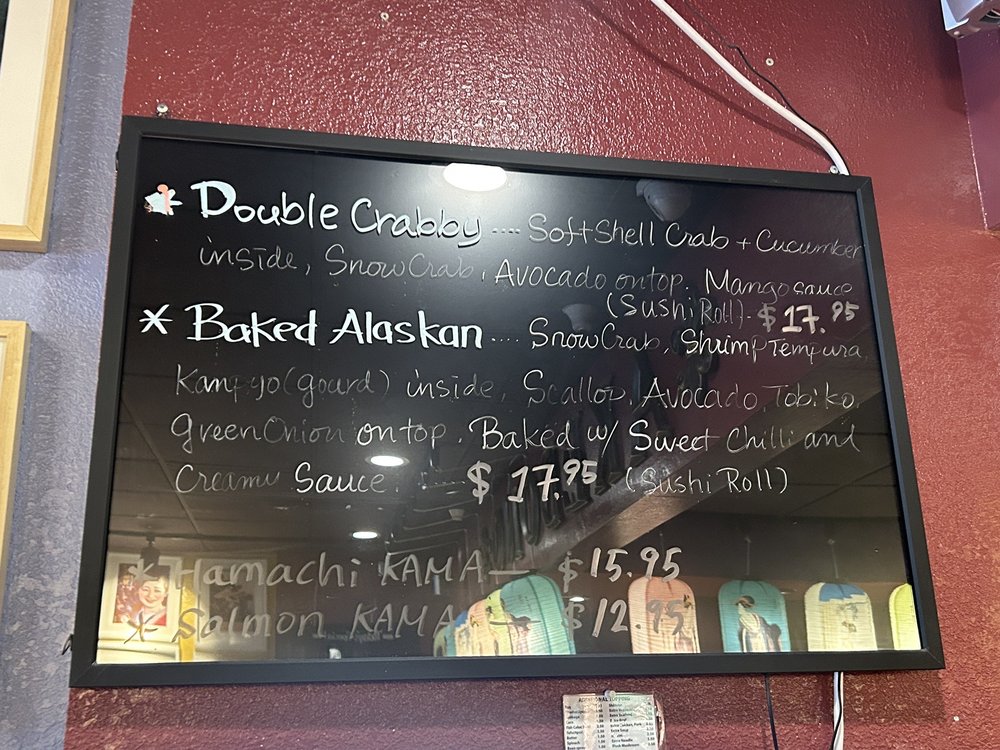 * Double Crabby .... Soft Shell Crab + Cucumber
inside, Snow Crab, Avocado on top. Mango sauce
(Sushi Roll) - $17.95
* Baked Alaskan .... Snow Crab, Shrimp Tempura,
Kampyo (gourd) inside, Scallop, Avocado, Tobiko,
Green Onion on top. Baked w/ Sweet Chilli and
Creamy Sauce. ..... $17.95 (Sushi Roll)
* Hamachi KAMA — $15.95
* Salmon KAMA — $12.95
ADDITIONAL TOPPING